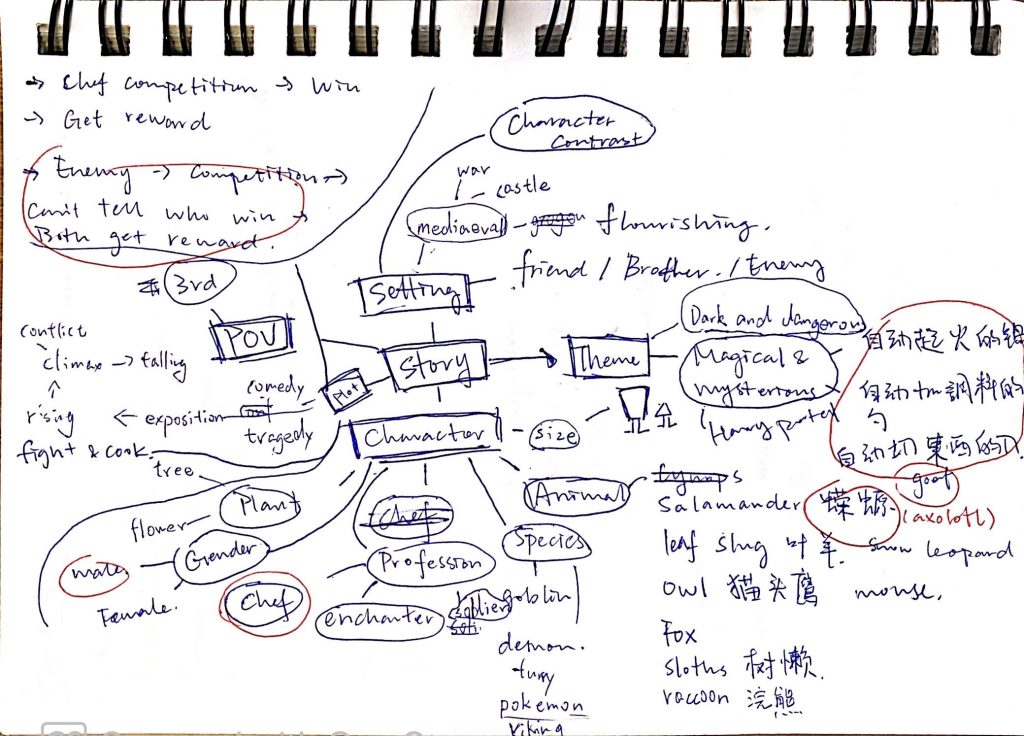 → Chef competition → Win
→ Get reward
→ Enemy → Competition →
Can't tell who win →
Both get reward.
3rd
POV
Character
Contrast
war
castle
mediaeval
flourishing.
Setting
friend / Brother. / Enemy
Story
Theme
Dark and dangerous
Magical &
mysterious
Harry poter
自动起火的锅
自动加調料的
勺
自动切東西的刀.
conflict
climax → falling
rising ← exposition
fight & cook.
Plot
comedy
tragedy
Character
size
tree
Plant
flower
Gender
male
Female.
Chef
Chef
Profession
enchanter
soldier
Species
goblin
demon.
fury
pokemon
viking
Animal
goat
Salamander 蝾螈 (axolotl)
leaf slug 叶羊. snow leopard
owl 猫头鹰 mouse.
Fox
sloths 树懒.
raccoon 浣熊